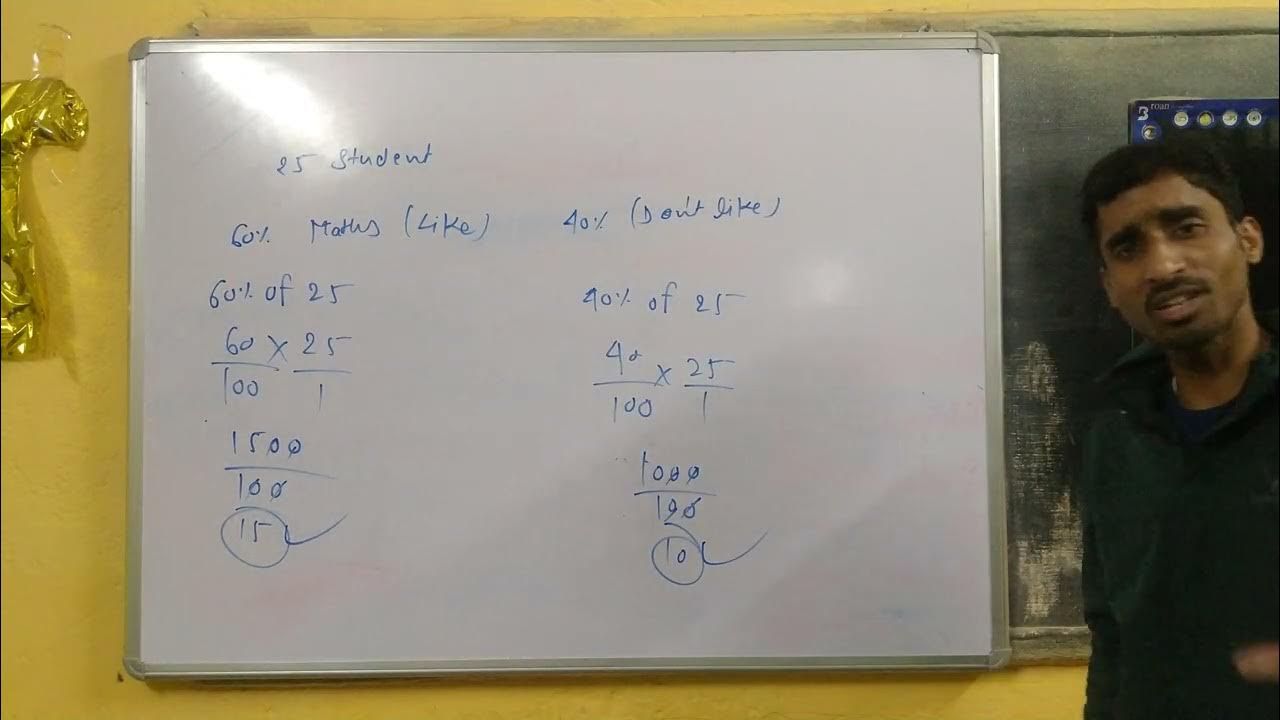 25 Student
60% Maths (Like)
40% (Don't like)
60% of 25
60/100 × 25/1
1500/100
15
40% of 25
40/100 × 25/1
1000/100
10
roan